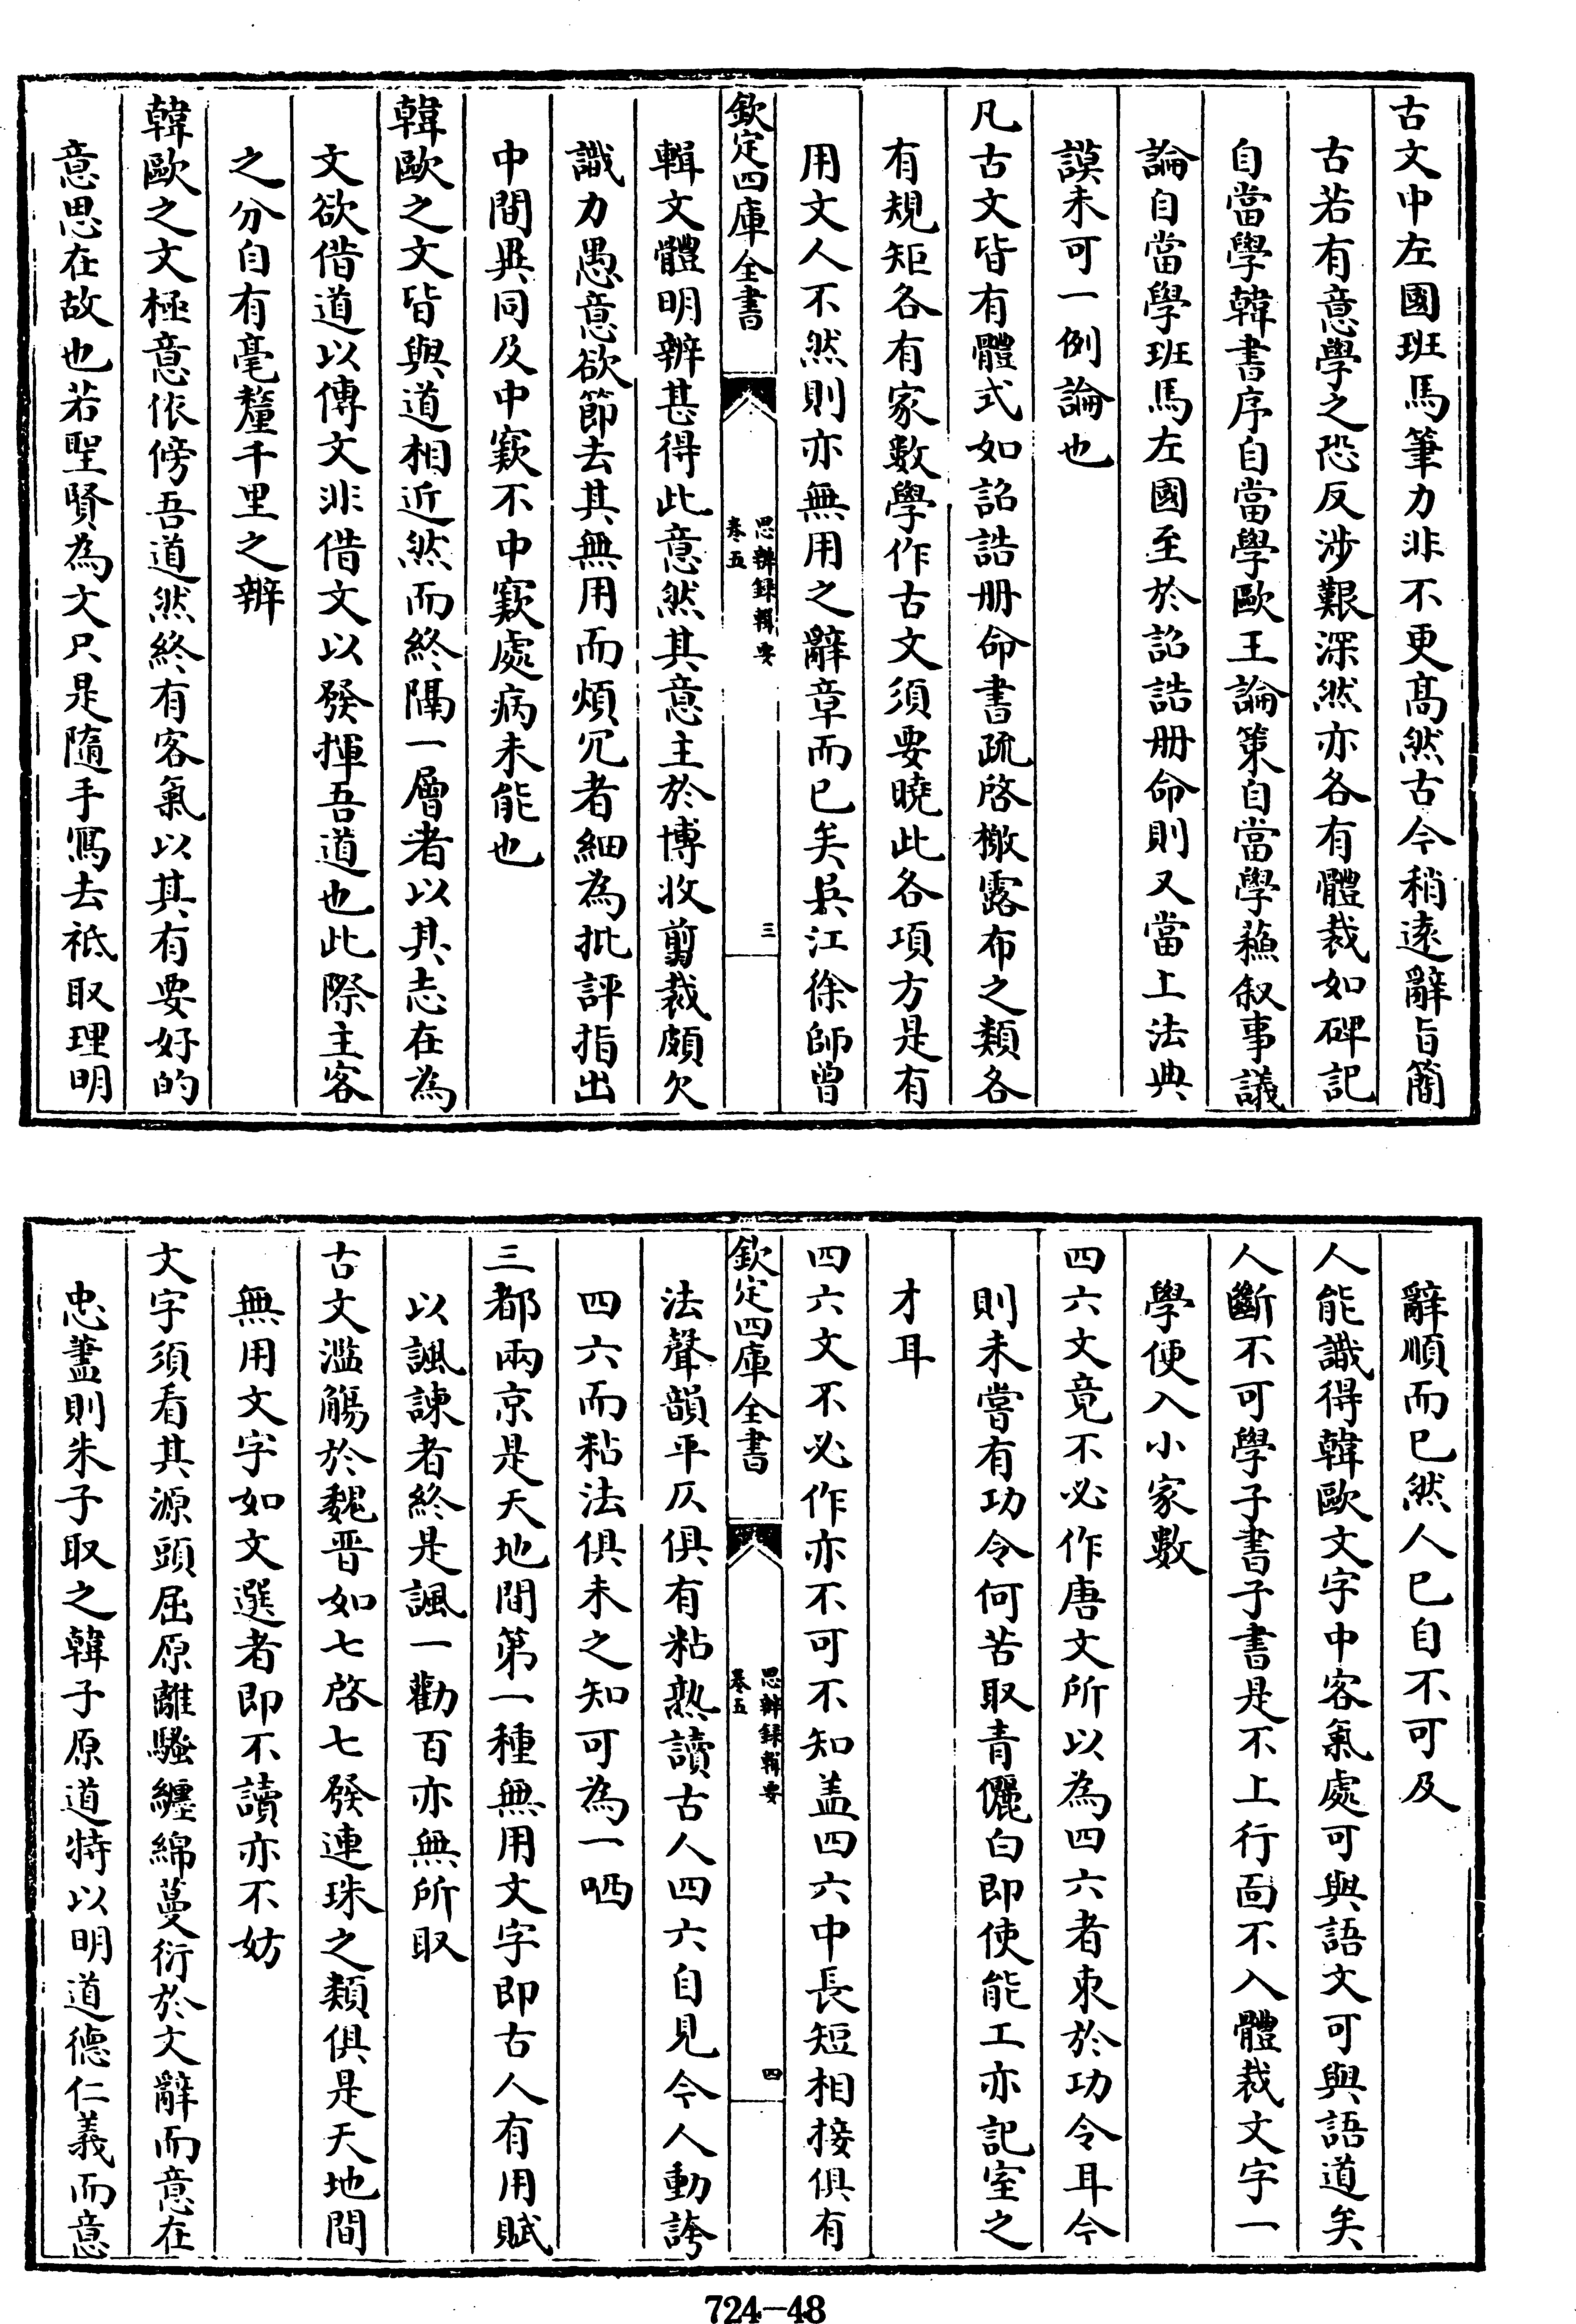 古文中左國班馬筆力非不更髙然古今稍逺辭旨簡
古若有意學之恐反涉艱深然亦各有體裁如碑記
自當學韓書序自當學歐王論策自當學蘇叙事議
論自當學班馬左國至於詔誥册命則又當上法典
謨未可一例論也
凡古文皆有體式如詔誥册命書疏啓檄露布之類各
有規矩各有家數學作古文須要曉此各項方是有
用文人不然則亦無用之辭章而已矣吳江徐師曾
欽定四庫全書
思辨録輯要
卷五
三
輯文體明辨甚得此意然其意主於博收剪裁頗欠
識力愚意欲節去其無用而煩冗者細為批評指出
中間異同及中窾不中窾處病未能也
韓歐之文皆與道相近然而終隔一層者以其志在為
文欲借道以傳文非借文以發揮吾道也此際主客
之分自有毫釐千里之辨
韓歐之文極意依傍吾道然終有客氣以其有要好的
意思在故也若聖賢為文只是隨手寫去祗取理明
辭順而已然人已自不可及
人能識得韓歐文字中客氣處可與語文可與語道矣
人斷不可學子書子書是不上行面不入體裁文字一
學便入小家數
四六文竟不必作唐文所以為四六者束於功令耳今
則未嘗有功令何苦取青儷白即使能工亦記室之
才耳
四六文不必作亦不可不知盖四六中長短相接俱有
欽定四庫全書
思辨録輯要
卷五
四
法聲韻平仄俱有粘熟讀古人四六自見今人動誇
四六而粘法俱未之知可為一哂
三都兩京是天地間第一種無用文字即古人有用賦
以諷諫者終是諷一勸百亦無所取
古文濫觴於魏晋如七啓七發連珠之類俱是天地間
無用文字如文選者即不讀亦不妨
文字須看其源頭屈原離騷纏綿蔓衍於文辭而意在
忠藎則朱子取之韓子原道特以明道德仁義而意
724-48